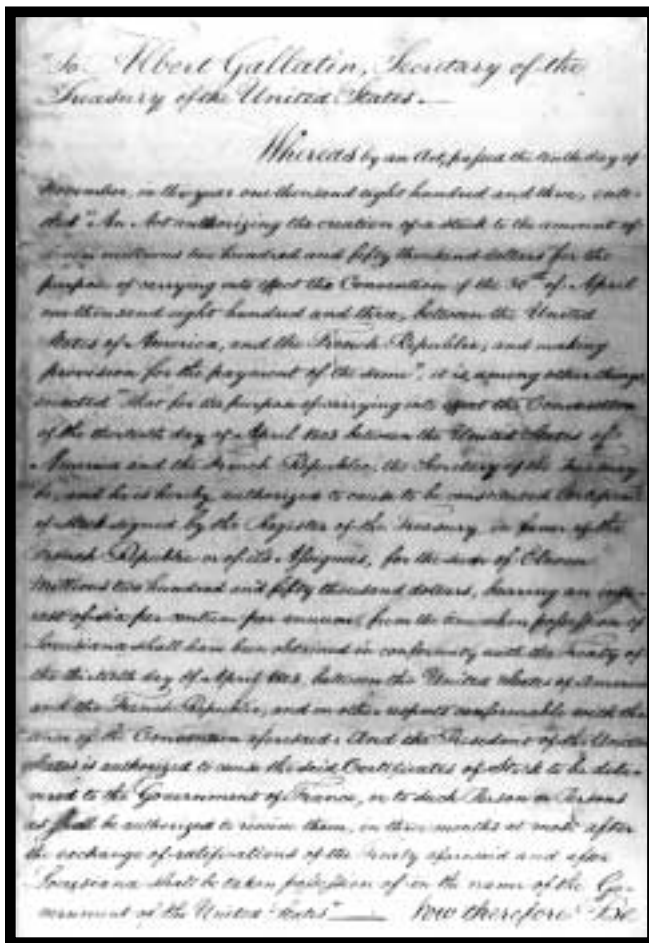 To Albert Gallatin, Secretary of the
Treasury of the United States.—
Whereas by an Act, passed the tenth day of
November, in the year one thousand eight hundred and three, enti-
tled "An Act authorizing the creation of a stock to the amount of
eleven millions two hundred and fifty thousand dollars for the
purpose of carrying into effect the Convention of the 30th of April
one thousand eight hundred and three, between the United
States of America, and the French Republic, and making
provision for the payment of the same", it is, among other things
enacted "That for the purpose of carrying into effect the Convention
of the thirtieth day of April 1803 between the United States of
America and the French Republic, the Secretary of the Treasury
be, and he is hereby, authorized to cause to be constituted Certificates
of stock signed by the Register of the Treasury, in favor of the
French Republic or of its Assignees, for the sum of Eleven
Millions two hundred and fifty thousand dollars, bearing an inte-
rest of six per centum per annum, from the time when possession of
Louisiana shall have been obtained in conformity with the treaty of
the thirtieth day of April 1803, between the United States of America
and the French Republic, and in other respects conformable with the
tenor of the Convention aforesaid: And the President of the United
States is authorized to cause the said Certificates of Stock to be deli-
vered to the Government of France, or to such Person or Persons
as shall be authorized to receive them, in three months at most after
the exchange of ratifications of the treaty aforesaid and after
Louisiana shall be taken possession of in the name of the Go-
vernment of the United States" —— Now therefore Be